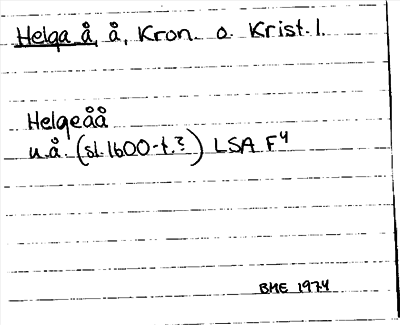 Helga å å, Kron. o. Krist. l.
Helgeåå
u.å. (sl. 1600-t.?) LSA F4
BME 1974